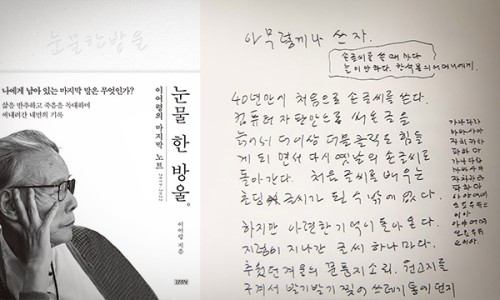 눈물 한 방울
나에게 남아 있는 마지막 말은 무엇인가?
삶을 반추하고 죽음을 독대하며
써내려간 내면의 기록
눈물 한 방울。
이어령의 마지막 노트
이어령 지음
김영사
아무렇게나 쓰자.
손글씨를 쓸 때마다
눈이 안 좋다. 한석봉의 어머니에게.
40년만에 처음으로 손글씨를 쓴다.
컴퓨터 자판만으로 써온 글을
늙어서 더이상 더블클릭도 힘들
게 되면서 다시 옛날의 손글씨로
돌아간다. 처음 글씨를 배우는
초딩 글씨가 될 수 밖에 없다.
하지만 아련한 기억이 돌아온다.
지렁이 지나간 글씨 하나마다.
추웠던 겨울의 문풍지 소리. 원고지를
구겨서 발기발기 찢어 쓰레기통에 던지